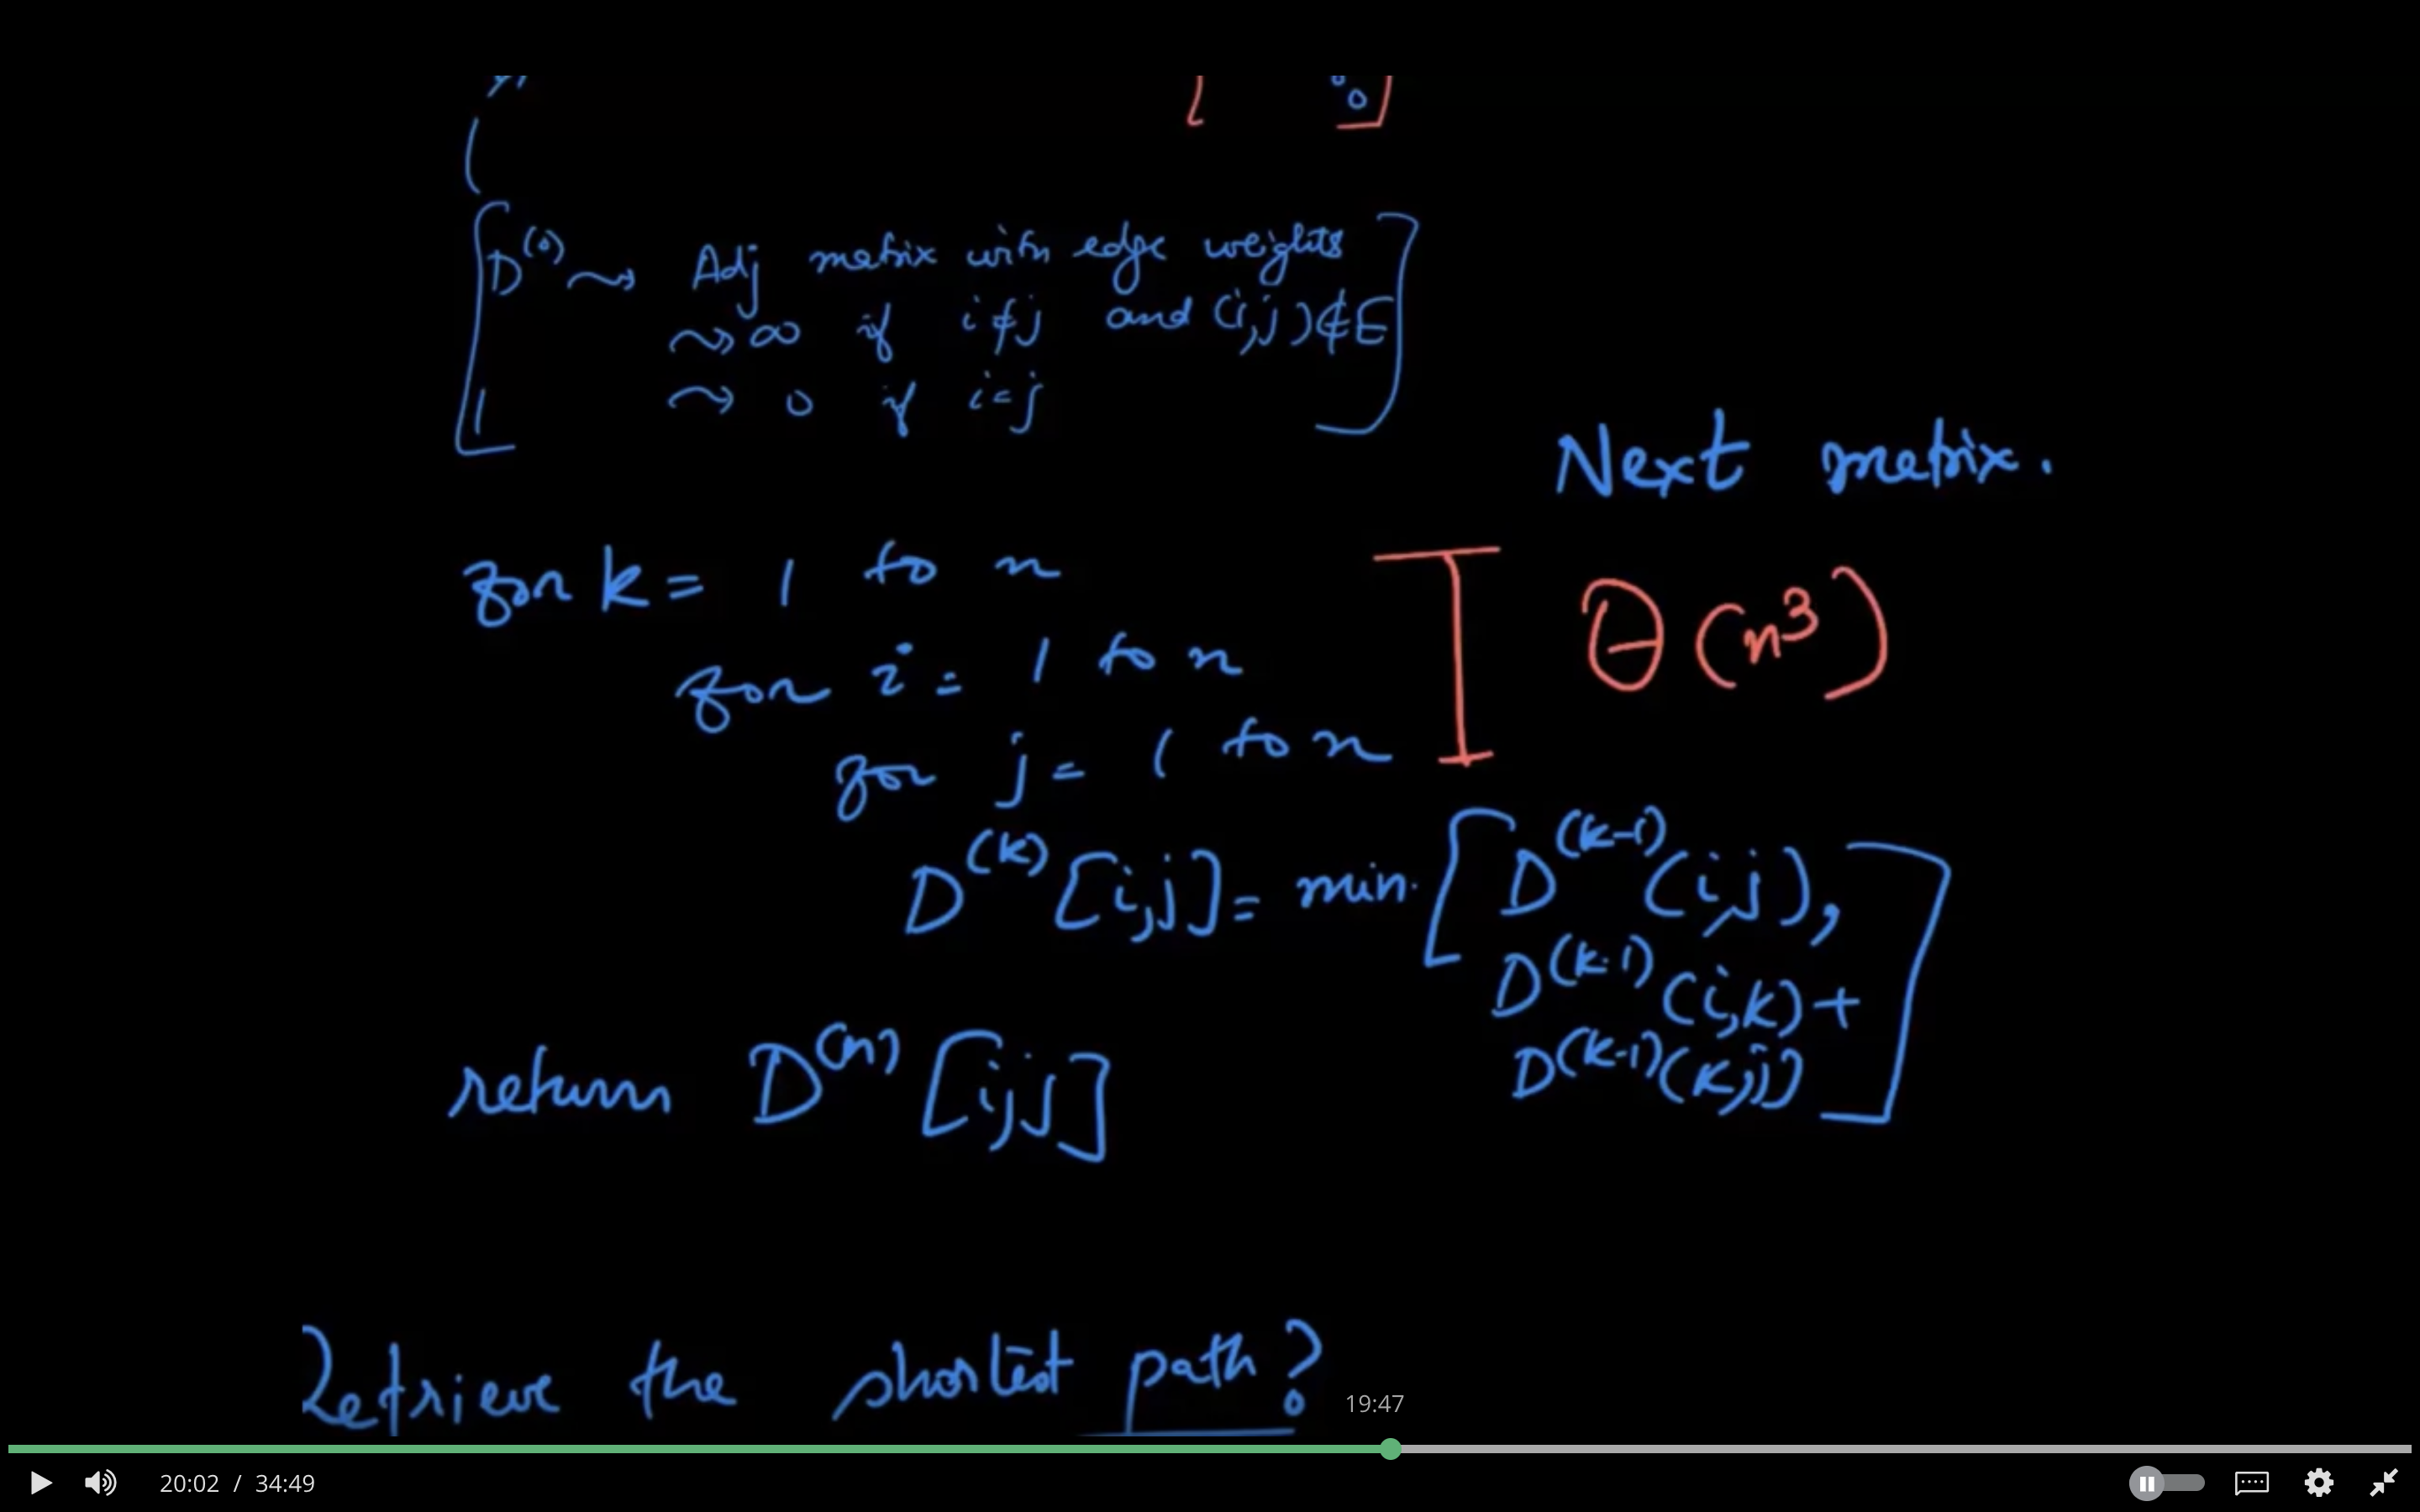 D^(0) ⇝ Adj matrix with edge weights
⇝ ∞ if i ≠ j and (i,j) ∉ E
⇝ 0 if i = j
Next matrix.
for k = 1 to n
for i = 1 to n
for j = 1 to n
Θ(n³)
D^(k) [i,j] = min [ D^(k-1) (i,j),
D^(k-1) (i,k) +
D^(k-1) (k,j) ]
return D^(n) [i,j]
Retrieve the shortest path?
19:47
20:02 / 34:49